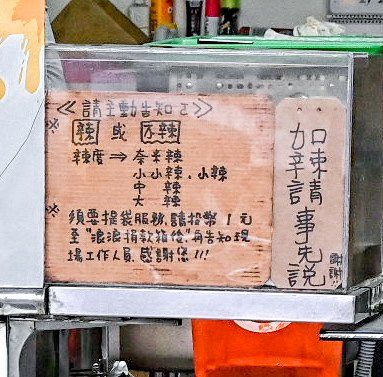 ≪請主動告知≫
※ 辣 或 不辣
辣度 ⇒ 奈米辣
小小辣、小辣
中 辣
大 辣
※ 須要提袋服務,請投幣 1 元
至"浪浪捐款箱後",再告知現
場工作人員,感謝您!!!
加辣請事先説
謝謝!!